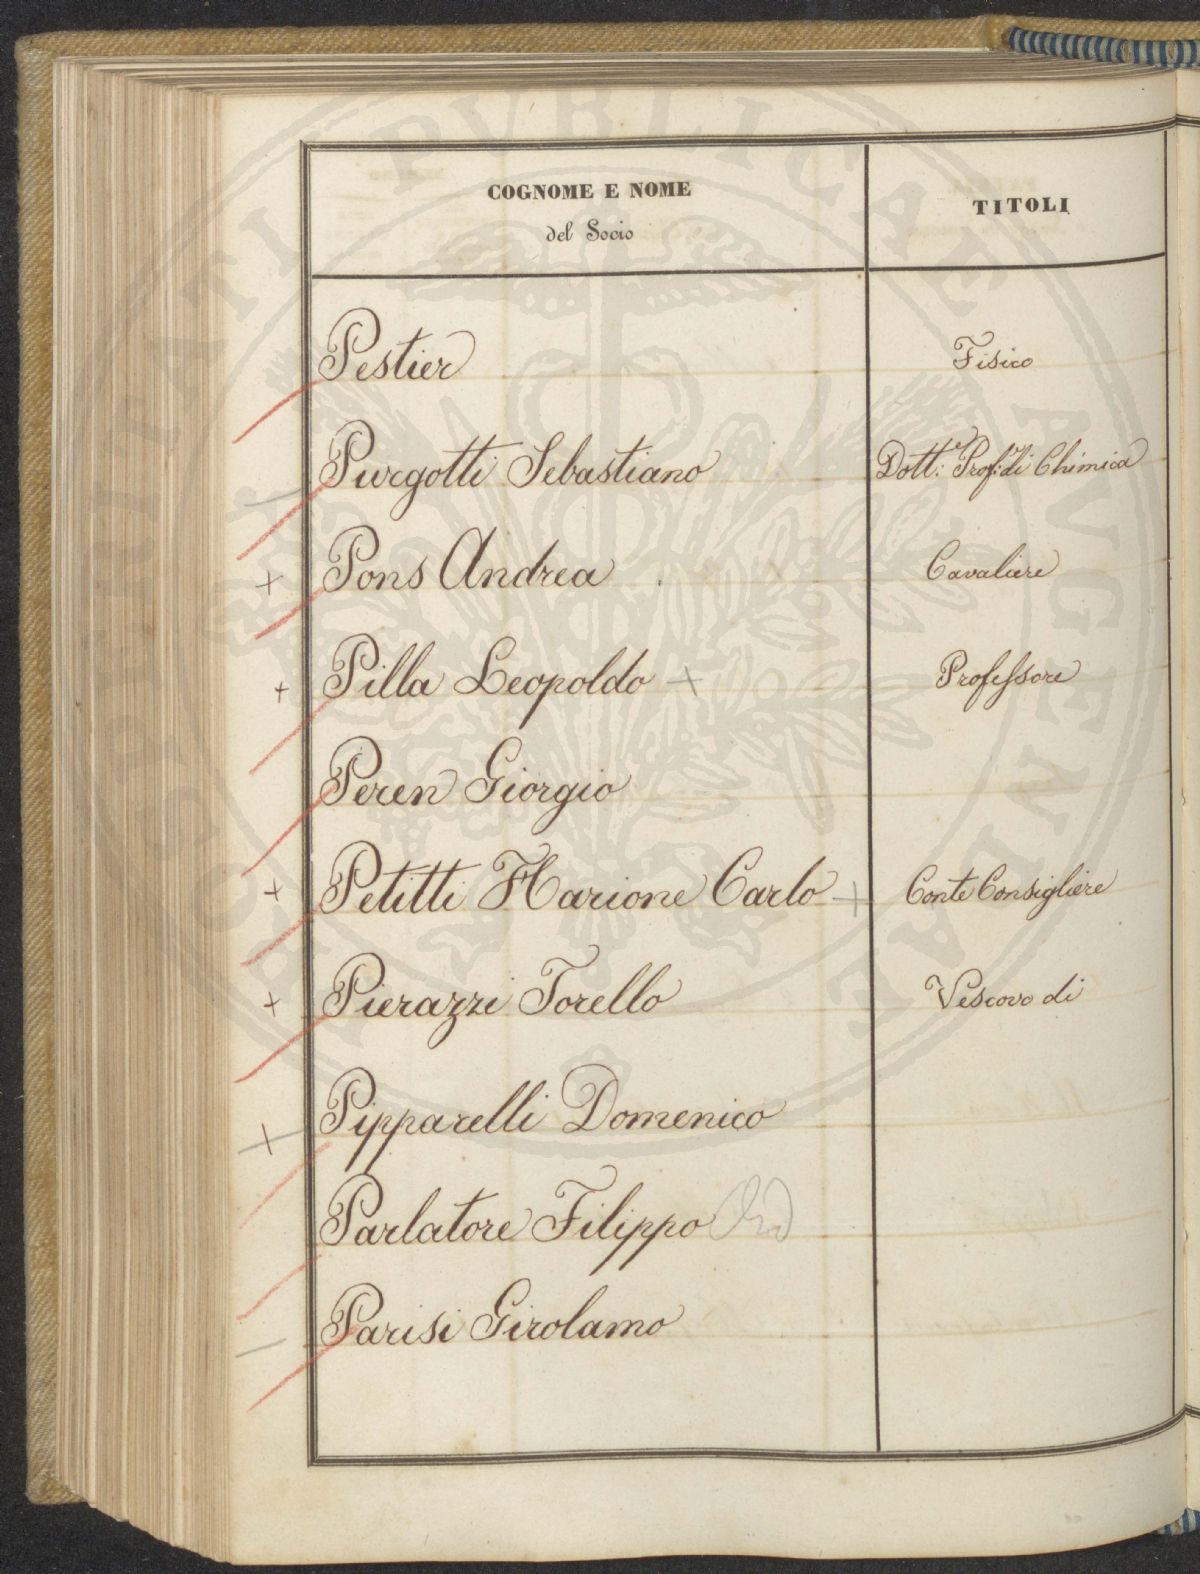 COGNOME E NOME
del Socio
TITOLI
Pestier Fisico
Purgotti Sebastiano Dott: Prof: di Chimica
+ Pons Andrea Cavaliere
+ Pilla Leopoldo + Professore
Peren Giorgio
+ Petitti Harione Carlo + Conte Consigliere
+ Pierazzi Torello Vescovo di
+ Pipparelli Domenico
Parlatore Filippo Ord
Parisi Girolamo